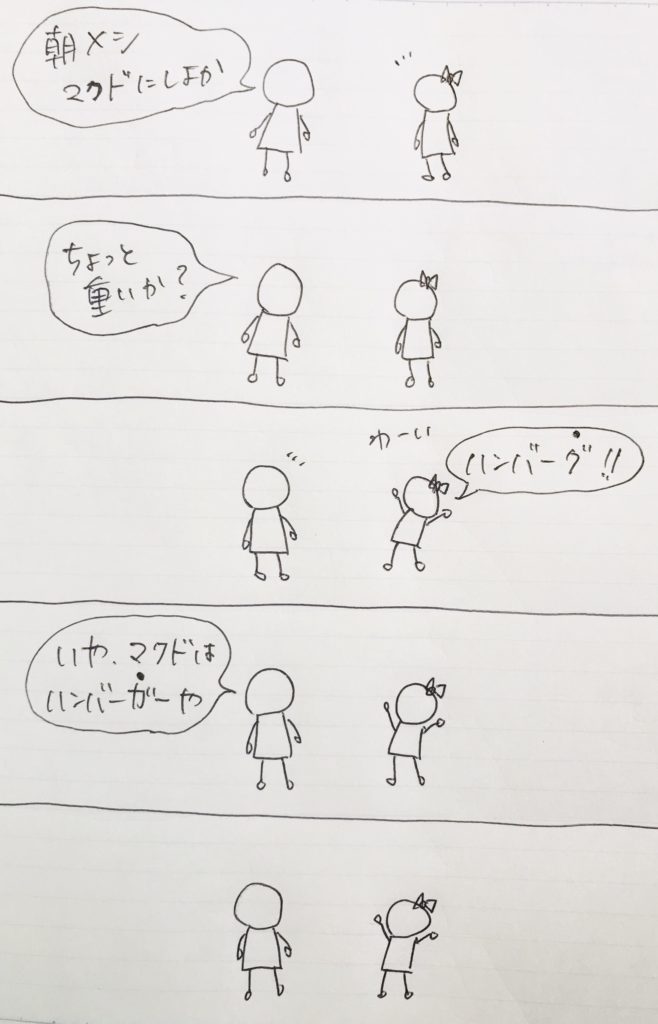 朝メシ
マクドにしよか
ちょっと
重いか?
わーい
ハンバーグ!!
いや、マクドは
ハンバーガーや